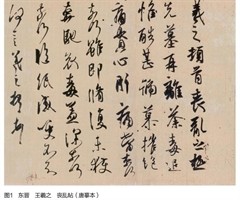 羲之頓首喪亂之極
先墓再離荼毒追
惟酷甚號慕摧絕
痛貫心肝痛當奈何
奈何雖即脩復未獲
奔馳哀毒益深奈何
奈何臨紙感哽不知
何言羲之頓首頓首
图1 东晋 王羲之 丧乱帖（唐摹本）